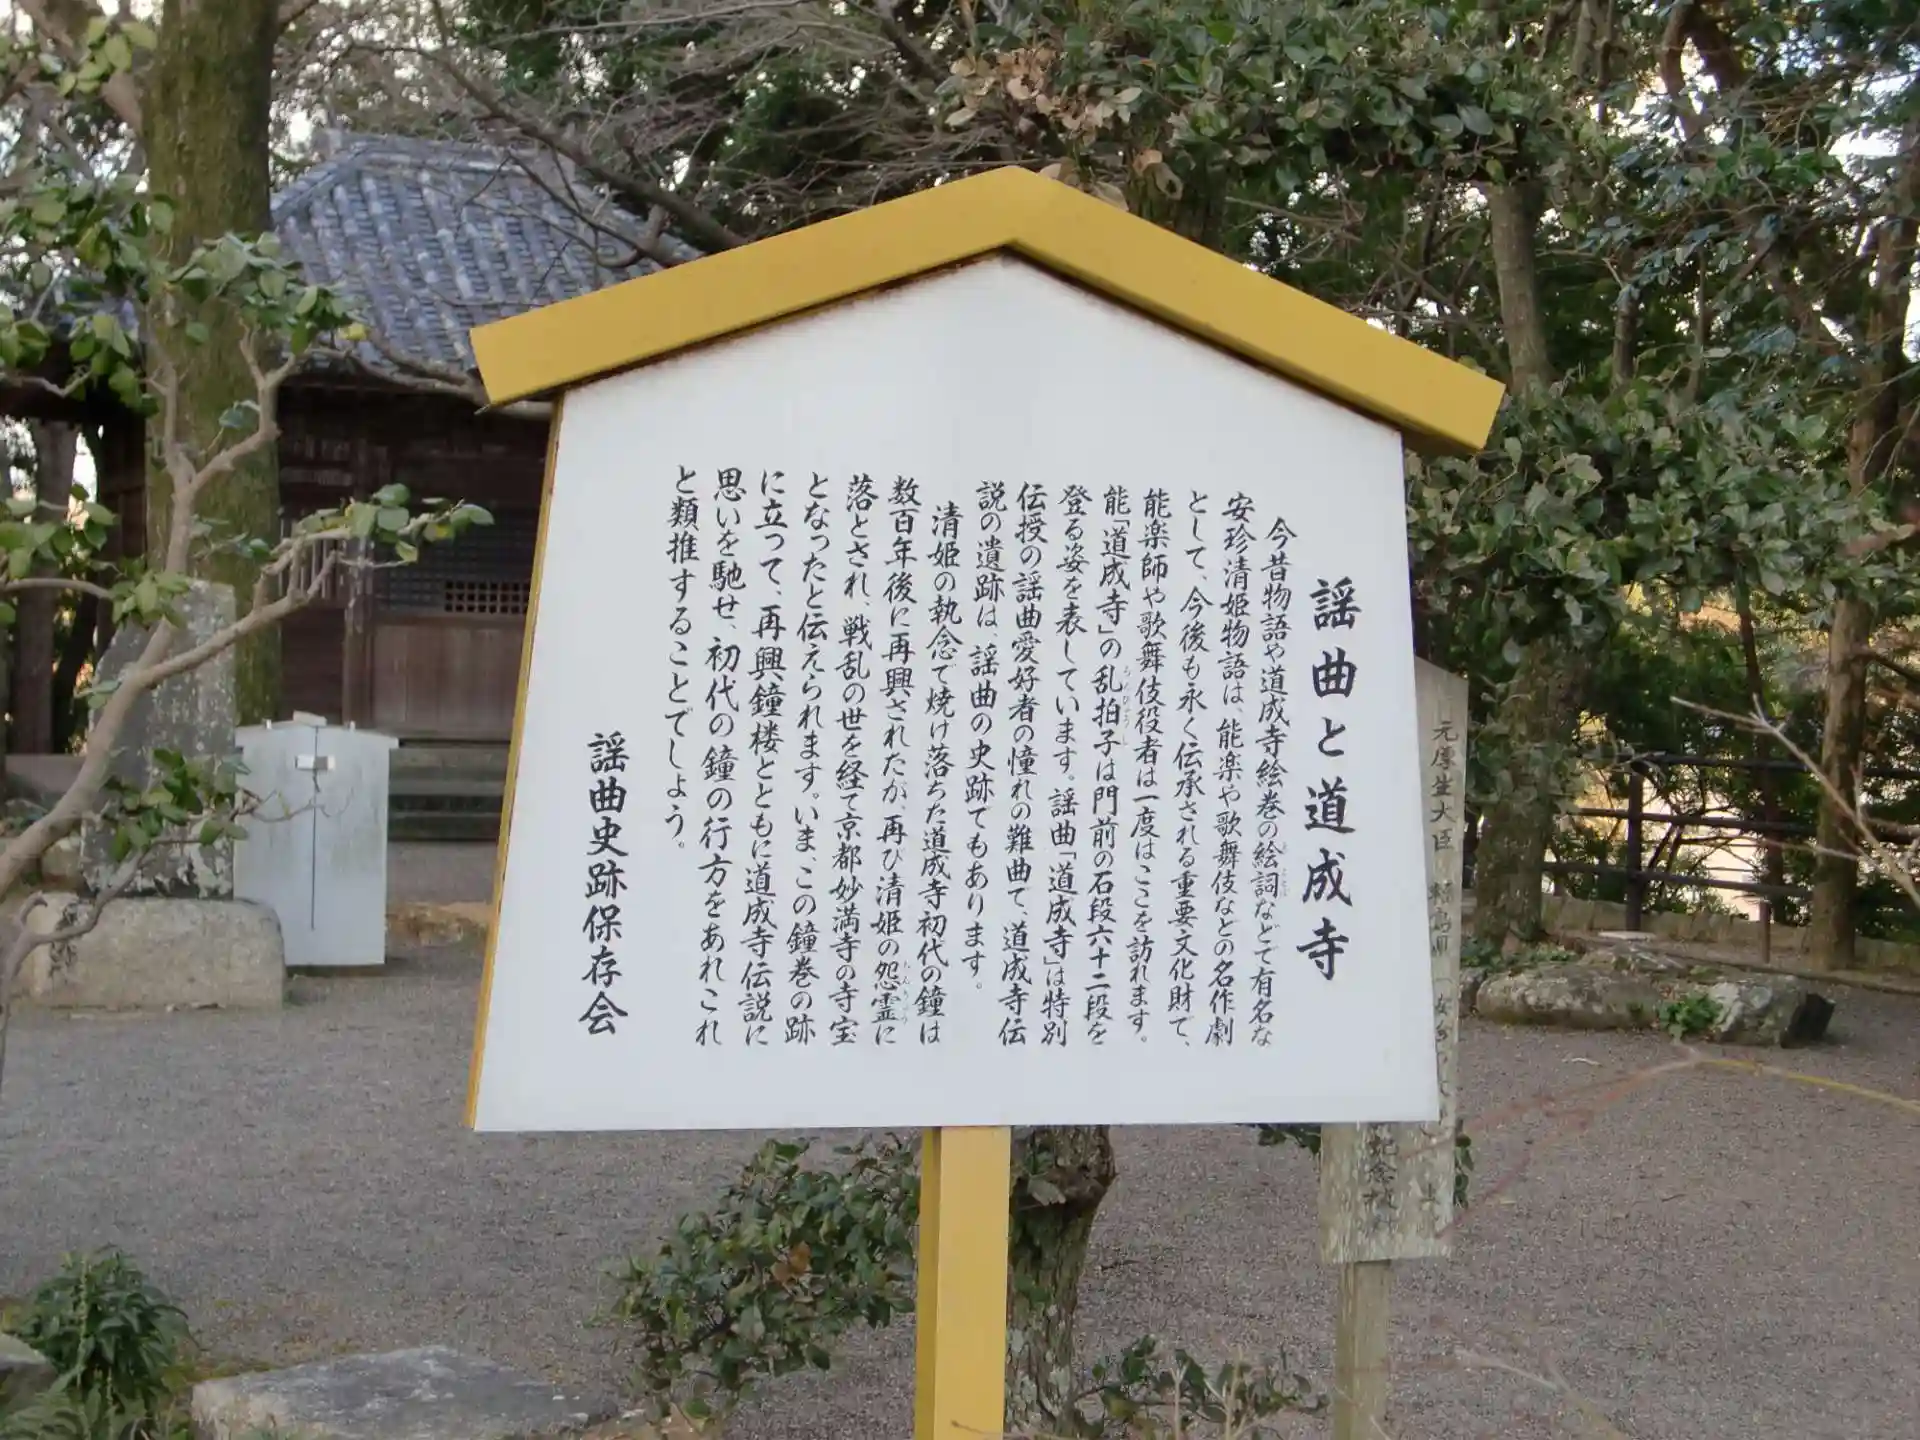 謡曲と道成寺
今昔物語や道成寺絵巻の絵詞などで有名な
安珍清姫物語は、能楽や歌舞伎などの名作劇
として、今後も永く伝承される重要文化財で、
能楽師や歌舞伎役者は一度はここを訪れます。
能「道成寺」の乱拍子は門前の石段六十二段を
登る姿を表しています。謡曲「道成寺」は特別
伝授の謡曲愛好者の憧れの難曲で、道成寺伝
説の遺跡は、謡曲の史跡でもあります。
清姫の執念で焼け落ちた道成寺初代の鐘は
数百年後に再興されたが、再び清姫の怨霊に
落とされ、戦乱の世を経て京都妙満寺の寺宝
となったと伝えられます。いま、この鐘巻の跡
に立って、再興鐘楼とともに道成寺伝説に
思いを馳せ、初代の鐘の行方をあれこれ
と類推することでしよう。
謡曲史跡保存会
元厚生大臣
記念植